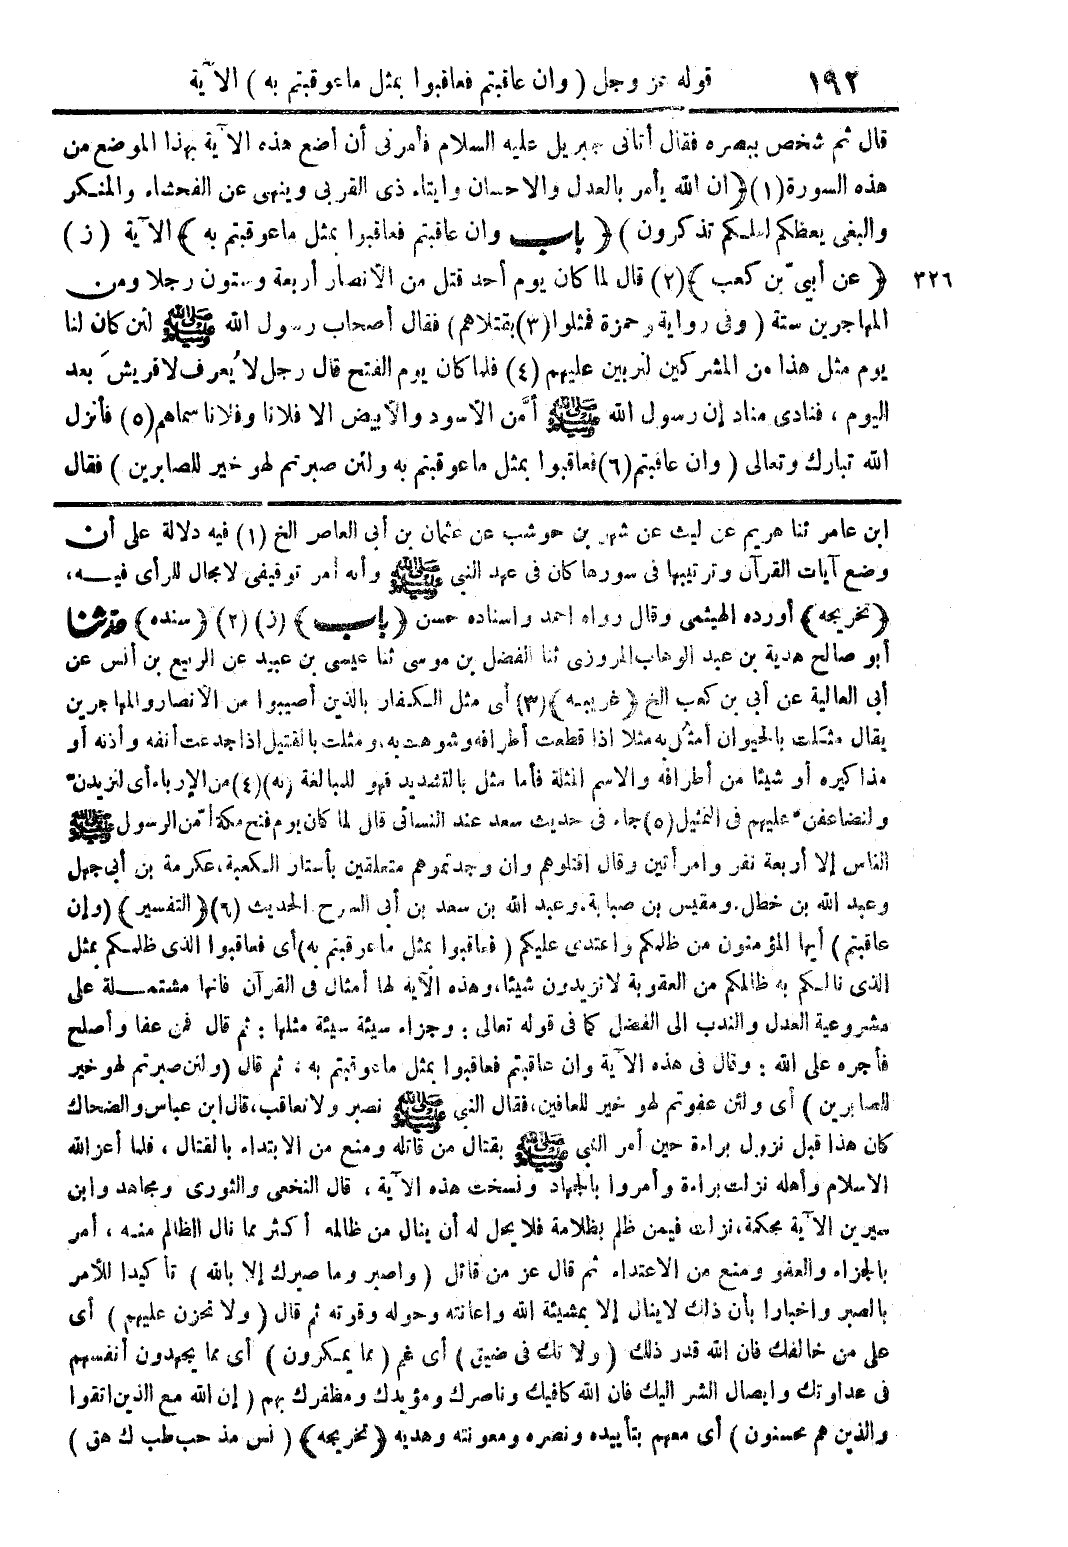 ١٩٢ قوله عز وجل ( وان عاقبتم فعاقبوا بمثل ماعوقبتم به ) الآية
قال ثم شخص ببصره فقال أتانى جبريل عليه السلام فأمرنى أن أضع هذه الآية بهذا الموضع من
هذه السورة(١)﴿ان الله يأمر بالعدل والاحسان وايتاء ذى القربى وينهى عن الفحشاء والمنكر
والبغى يعظكم لعلكم تذكرون ) ﴿ باب وان عاقبتم فعاقبوا بمثل ماعوقبتم به ﴾ الآية (ز)
٣٢٦ ﴿ عن أبيّ بن كعب ﴾(٢) قال لما كان يوم أحد قتل من الأنصار أربعة وستون رجلا ومن
المهاجرين ستة ( وفى رواية وحمزة فمثلوا(٣)بقتلاهم) فقال أصحاب رسول الله ﷺ لئن كان لنا
يوم مثل هذا من المشركين لنربين عليهم (٤) فلما كان يوم الفتح قال رجل لا يُعرف لاقريشَ بعد
اليوم ، فنادى مناد إن رسول الله ﷺ أمَّن الأسود والأبيض الا فلانا وفلانا سماهم(٥) فأنزل
الله تبارك وتعالى ( وان عاقبتم(٦)فعاقبوا بمثل ماعوقبتم به ولئن صبرتم لهو خير للصابرين ) فقال
ابن عامر ثنا هريم عن ليث عن شهر بن حوشب عن عثمان بن أبى العاصر الخ (١) فيه دلالة على أن
وضع آيات القرآن وترتيبها فى سورها كان فى عهد النبى ﷺ وأنه أمر توقيفى لامجال للرأى فيه،
﴿تخريجه﴾ أورده الهيثمى وقال رواه احمد واسناده حسن ﴿باب﴾ (ز) (٢) ﴿سنده﴾ حدثنا
أبو صالح هدية بن عبد الوهاب المروزى ثنا الفضل بن موسى ثنا عيسى بن عبيد عن الربيع بن أنس عن
أبى العالية عن أبى بن كعب الخ ﴿غريبه﴾(٣) أى مثل الكفار بالذين أصيبوا من الأنصار والمهاجرين
يقال مثلت بالحيوان أمثل به مثلا اذا قطعت أطرافه وشوهت به، ومثلت بالقتيل اذا جدعت أنفه وأذنه أو
مذاكيره أو شيئا من أطرافه والاسم المثلة فأما مثل بالتشديد فهو للمبالغة (نه)(٤)من الإرباء أى لنزيدنّ
ولنضاعفنّ عليهم فى التمثيل(٥)جاء فى حديث سعد عند النسائى قال لما كان يوم فتح مكة أمّن الرسول ﷺ
الناس إلا أربعة نفر وامرأتين وقال اقتلوهم وان وجدتموهم متعلقين بأستار الكعبة، عكرمة بن أبى جهل
وعبد الله بن خطال. ومقيس بن صبابة. وعبد الله بن سعد بن أبى السرح الحديث (٦)﴿التفسير﴾ (وإن
عاقبتم ) أيها المؤمنون من ظلمكم واعتدى عليكم ( فعاقبوا بمثل ماعوقبتم به)أى فعاقبوا الذى ظلمكم بمثل
الذى نالكم به ظالمكم من العقوبة لاتزيدون شيئا، وهذه الآية لها أمثال فى القرآن فانها مشتملة على
مشروعية العدل والندب الى الفضل كما فى قوله تعالى : وجزاء سيئة سيئة مثلها : ثم قال فمن عفا وأصلح
فأجره على الله : وقال فى هذه الآية وان عاقبتم فعاقبوا بمثل ماعوقبتم به ، ثم قال (ولئن صبرتم لهو خير
للصابرين ) أى ولئن عفوتم لهو خير للعافين، فقال النبى ﷺ نصبر ولا نعاقب، قال ابن عباس والضحاك
كان هذا قبل نزول براءة حين أمر النبى ﷺ بقتال من قاتله ومنع من الابتداء بالقتال ، فلما أعز الله
الاسلام وأهله نزلت براءة وأمروا بالجهاد ونسخت هذه الآية ، قال النخعى والثورى ومجاهد وابن
سيرين الآية محكمة، نزلت فيمن ظلم بظلامة فلا يحل له أن ينال من ظالمه أكثر مما نال الظالم منه ، أمر
بالجزاء والعفو ومنع من الاعتداء ثم قال عز من قائل ( واصبر وما صبرك إلا بالله ) تأكيدا للأمر
بالصبر واخبارا بأن ذلك لاينال إلا بمشيئة الله واعانته وحوله وقوته ثم قال ( ولا تحزن عليهم ) أى
على من خالفك فان الله قدر ذلك ( ولا تك فى ضيق ) أى غم ( مما يمكرون ) أى مما يجهدون أنفسهم
فى عداوتك وايصال الشر اليك فان الله كافيك وناصرك ومؤيدك ومظفرك بهم ( إن الله مع الذين اتقوا
والذين هم محسنون ) أى معهم بتأييده ونصره ومعونته وهديه ﴿تخريجه﴾ ( نس مذ حب طب ك هق )